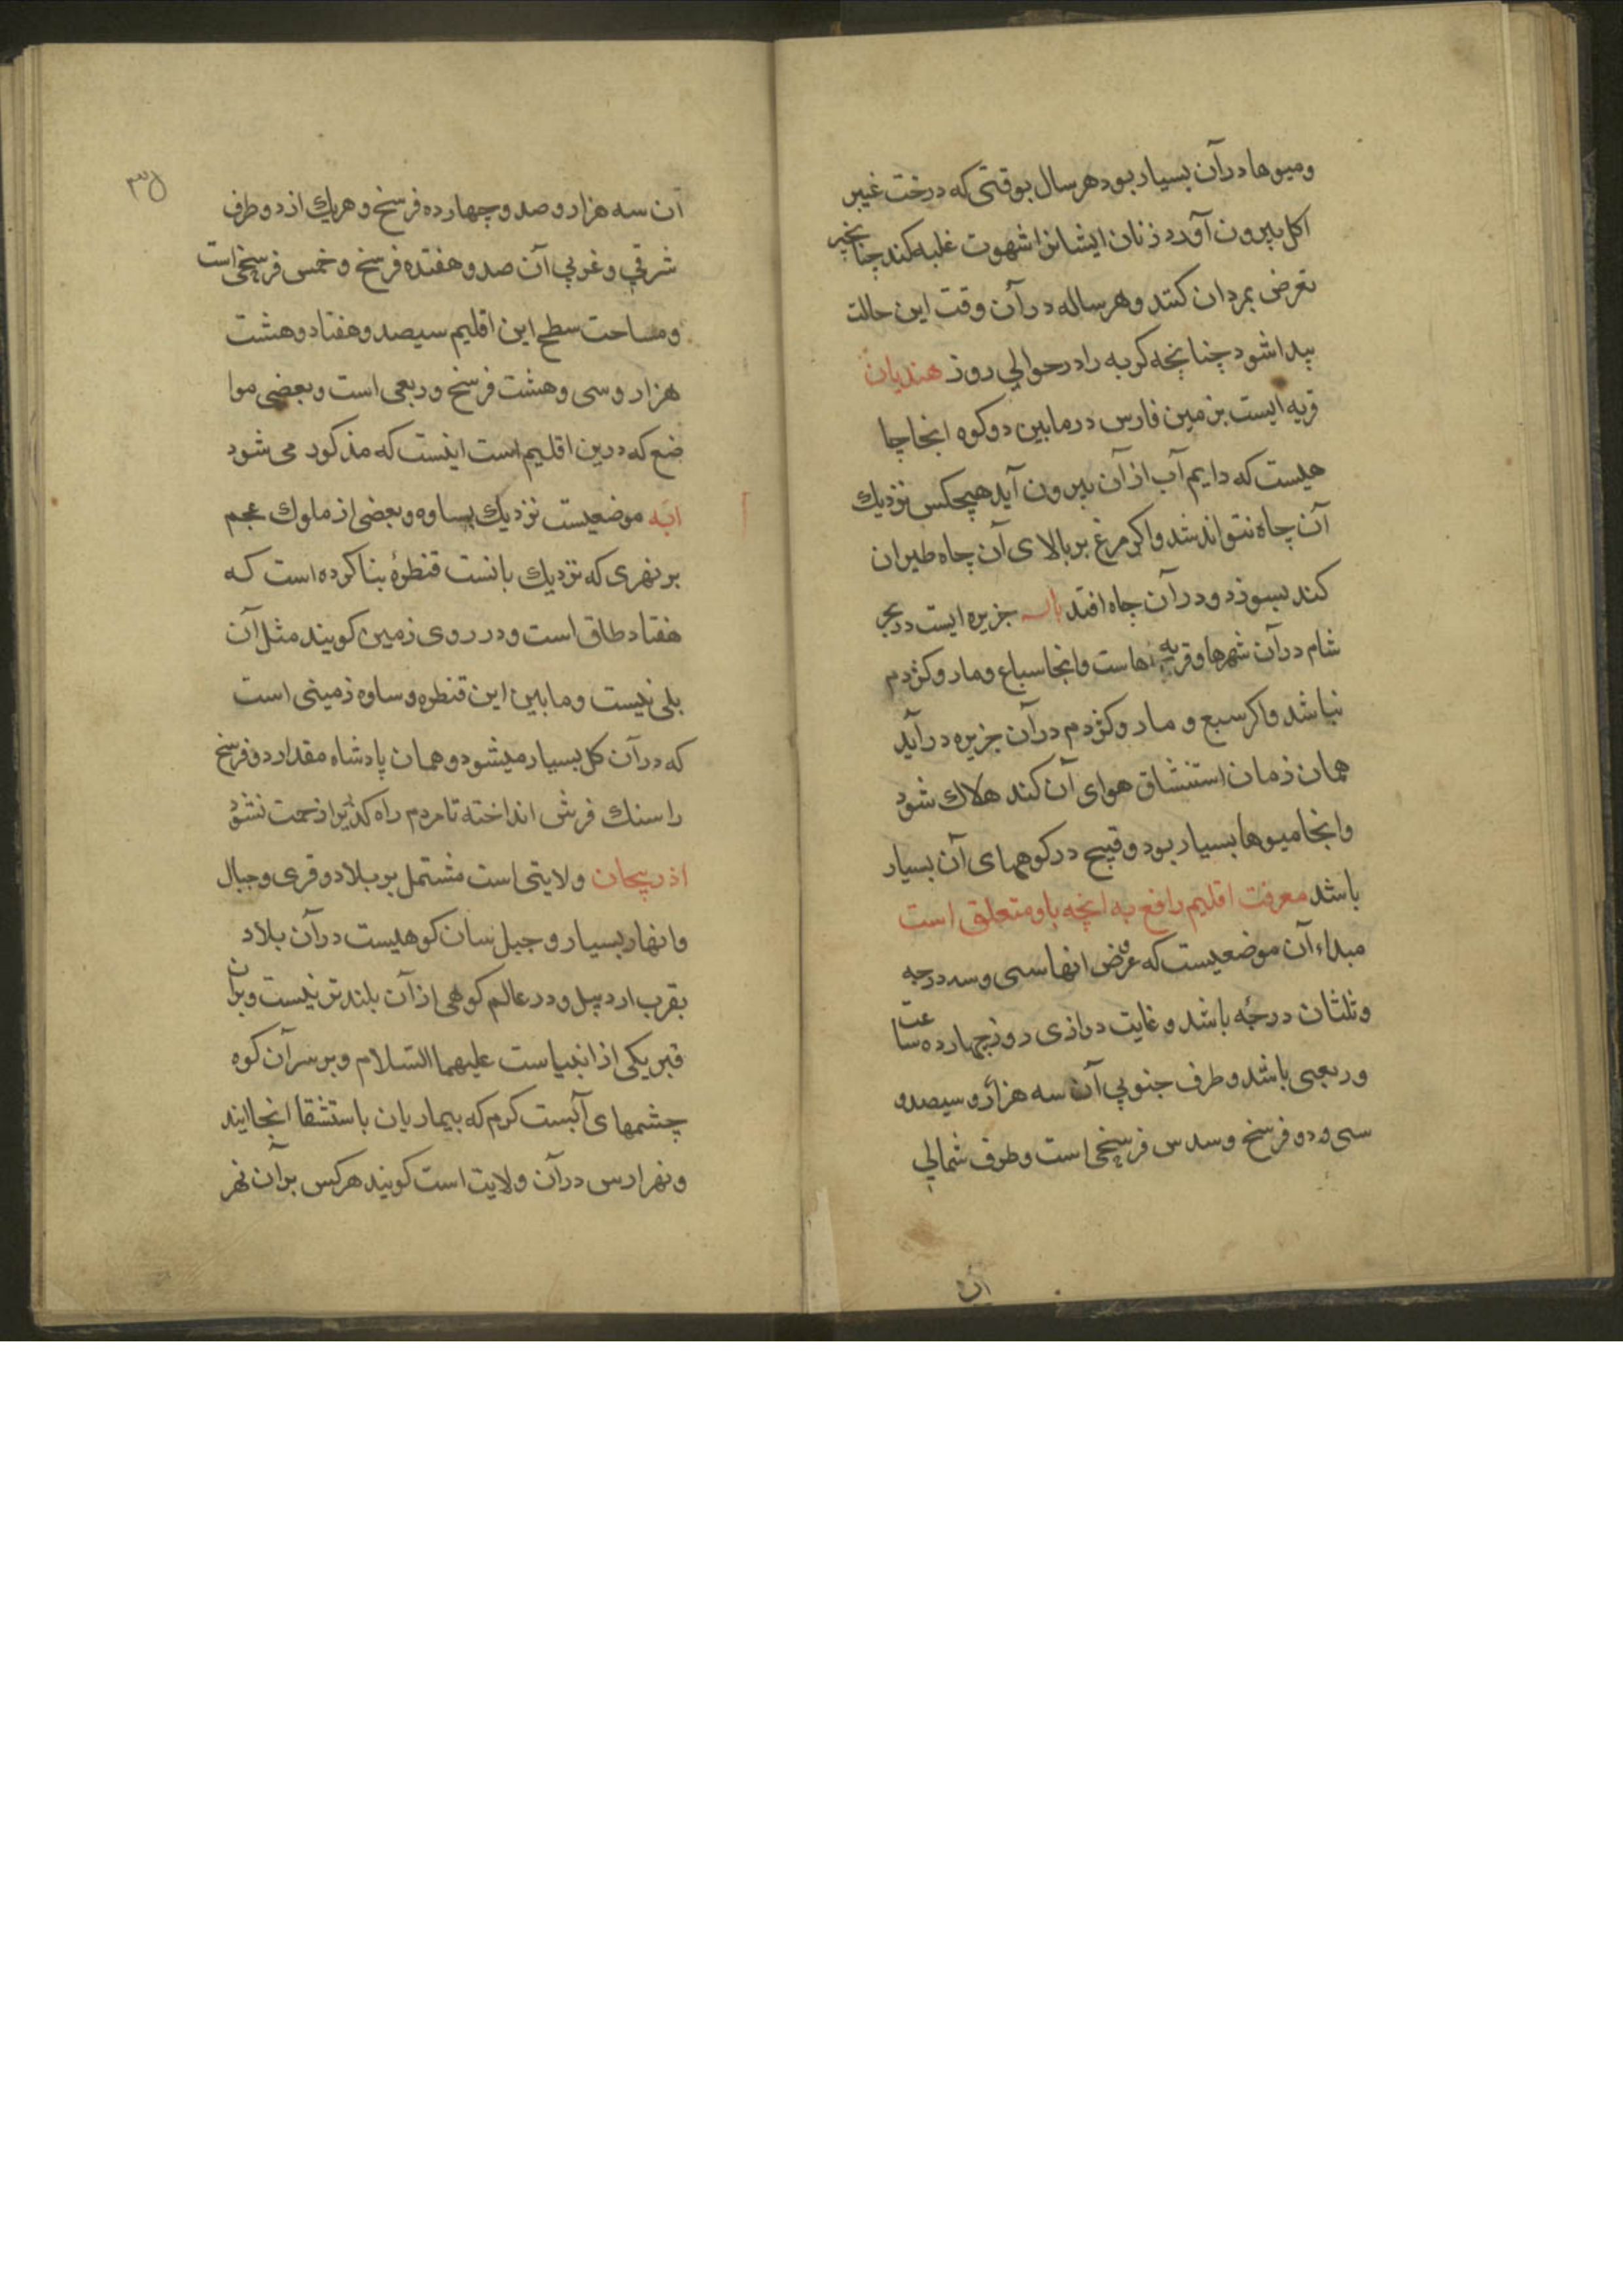 ومیوها درآن بسیار بود هر سال بوقتی که درخت غیبر
اکل بیرون آورد زنان ایشانرا شهوت غلبه کند چنانچه
تعرض بمردان کنند و هر ساله درآن وقت این حالت
پیدا شود چنانچه کربه را در حوالی روز هندیان
قریه ایست بزمین فارس در مابین دو کوه انجا چا
هیست که دایم آب از آن بیرون آید هیچکس نزدیك
آن چاه نتواند شد واکر مرغ بر بالای آن چاه طیران
کند بسوزد و در آن چاه افتد جزیره ایست در بحر
شام درآن شهرها و قریه ها است وانجا سباع ومار وکژدم
نباشد واکر سبع و مار وکژدم درآن جزیره درآید
همان زمان استنشاق هوای آن کند هلاك شود
وانجا میوها بسیار بود و قبج در کوههای آن بسیار
باشد معرفت اقلیم رافع به انچه باو متعلق است
مبداء آن موضعیست که عرض انها سی وسه درجه
وثلثان درجه باشد و غایت درازی روز چهارده ساعت
وربعی باشد وطرف جنوبی آن سه هزار و سیصد و
سی ودو فرسخ وسدس فرسخی است وطرف شمالی
آن
۳۵
آن سه هزار وصد وچهارده فرسخ و هریك از دو طرف
شرقی وغربی آن صد وهفتده فرسخ وخمس فرسخی است
ومساحت سطح این اقلیم سیصد وهفتاد وهشت
هزار وسی وهشت فرسخ وربعی است وبعضی موا
ضع که درین اقلیم است اینست که مذکور می شود
ابه موضعیست نزدیك بساوه وبعضی از ملوك عجم
بر نهری که نزدیك بانست قنطرهٔ بنا کرده است که
هفتاد طاق است ودر روی زمین کویند مثل آن
پلی نیست ومابین این قنطره وساوه زمینی است
که درآن کل بسیار میشود وهمان پادشاه مقدار دو فرسخ
را سنك فرش انداخته تا مردم راه کذر زحمت نشود
اذربیجان ولایتی است مشتمل بر بلاد وقری وجبال
وانهار بسیار وجبل سان کوهیست درآن بلاد
بقرب اردبیل ودر عالم کوهی از آن بلندتر نیست وبران
قبر یکی از انبیاست علیهما السلام وبر سر آن کوه
چشمهای آبست کرم که بیماریان باستشفا انجا ایند
ونهر ارس درآن ولایت است کویند هرکس برآن نهر